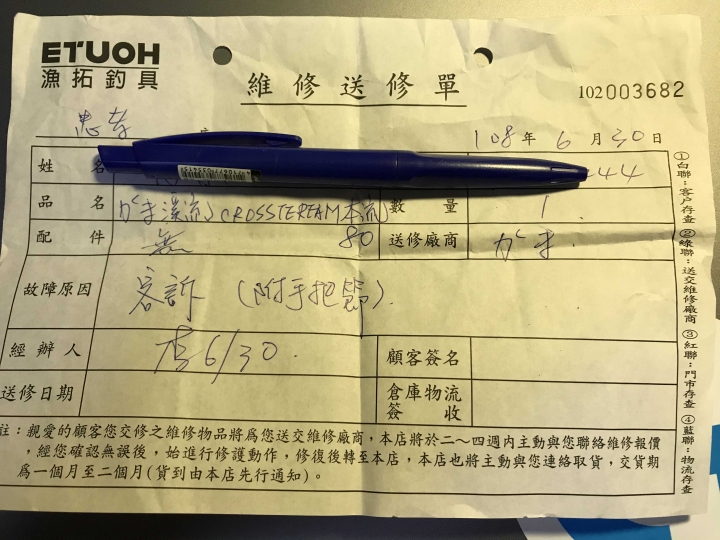 ETUOH
漁拓釣具
維修送修單
102003682
忠孝
108年6月30日
姓名
44
品名 がま溪流 CROSSTEREAM本流 80
數量 1
配件 無
送修廠商 がま
故障原因 客訴 (附手把節)
經辦人 店6/30.
顧客簽名
送修日期
倉庫物流簽收
註:親愛的顧客您交修之維修物品將為您送交維修廠商,本店將於二~四週內主動與您聯絡維修報價
,經您確認無誤後,始進行修護動作,修復後轉至本店,本店也將主動與您連絡取貨,交貨期
為一個月至二個月(貨到由本店先行通知)。
①白聯:客户存查 ②綠聯:送交維修廠商 ③紅聯:門市存查 ④藍聯:物流存查